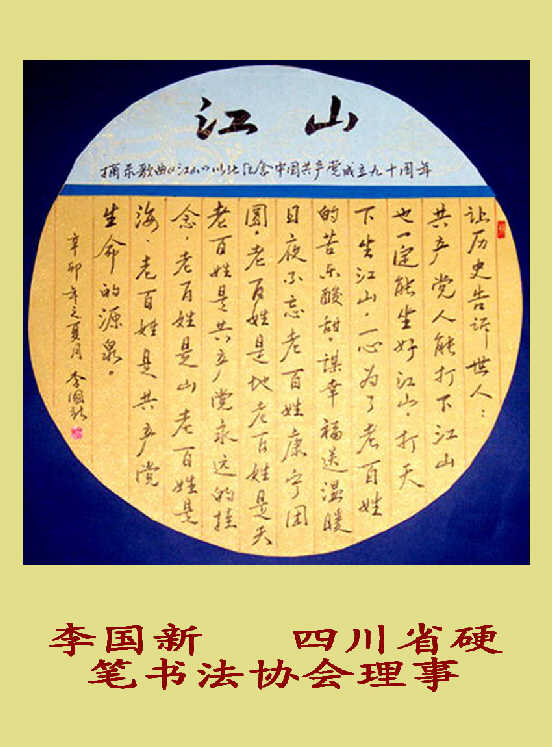 江山
摘录歌曲《江山》以此纪念中国共产党成立九十周年
让历史告诉世人：
共产党人能打下江山
也一定能坐好江山，打天
下坐江山，一心为了老百姓
的苦乐酸甜，谋幸福送温暖
日夜不忘老百姓康宁团
圆，老百姓是地老百姓是天
老百姓是共产党永远的挂
念，老百姓是山老百姓是
海，老百姓是共产党
生命的源泉。
辛卯年之夏月 李国新
李国新 四川省硬
笔书法协会理事